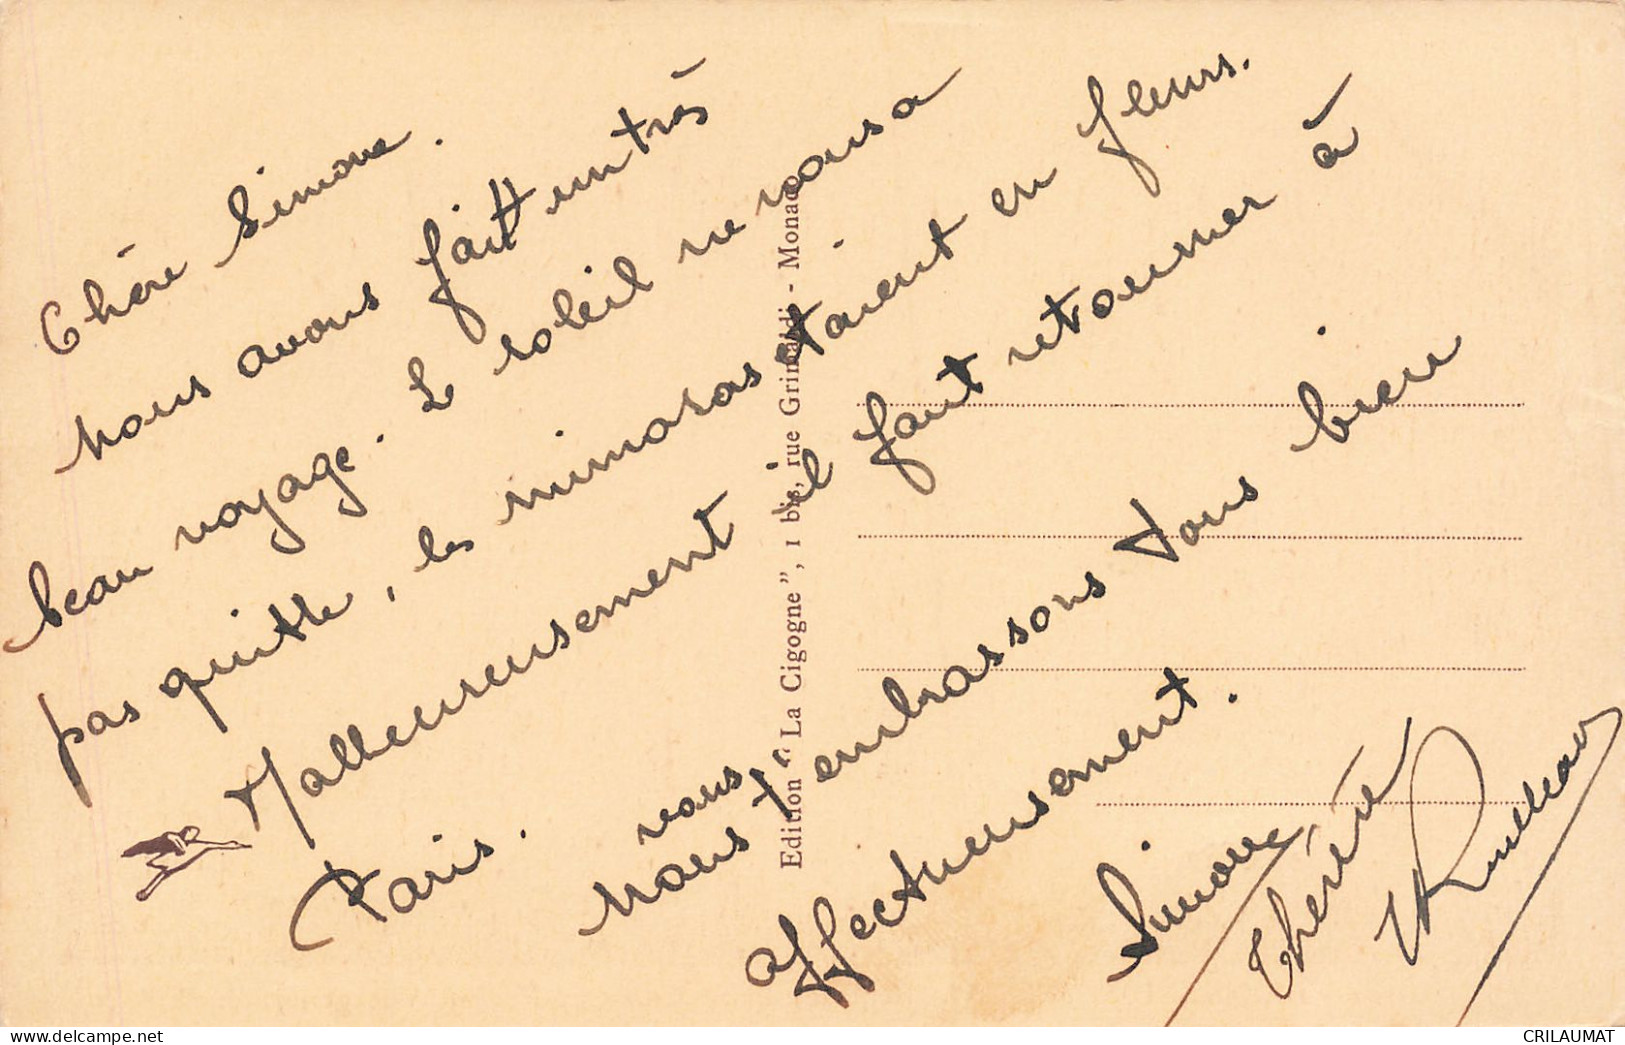 Chère Simone.
Nous avons fait un très
beau voyage. Le soleil ne nous a
pas quitté, les mimosas étaient en fleurs.
Malheureusement il faut retourner à
Paris. nous,
Nous t'embrassons tous bien
affectueusement.
Simone
Thérèse
Edition "La Cigogne", 1 bis, rue Grimaldi - Monaco
CRILAUMAT